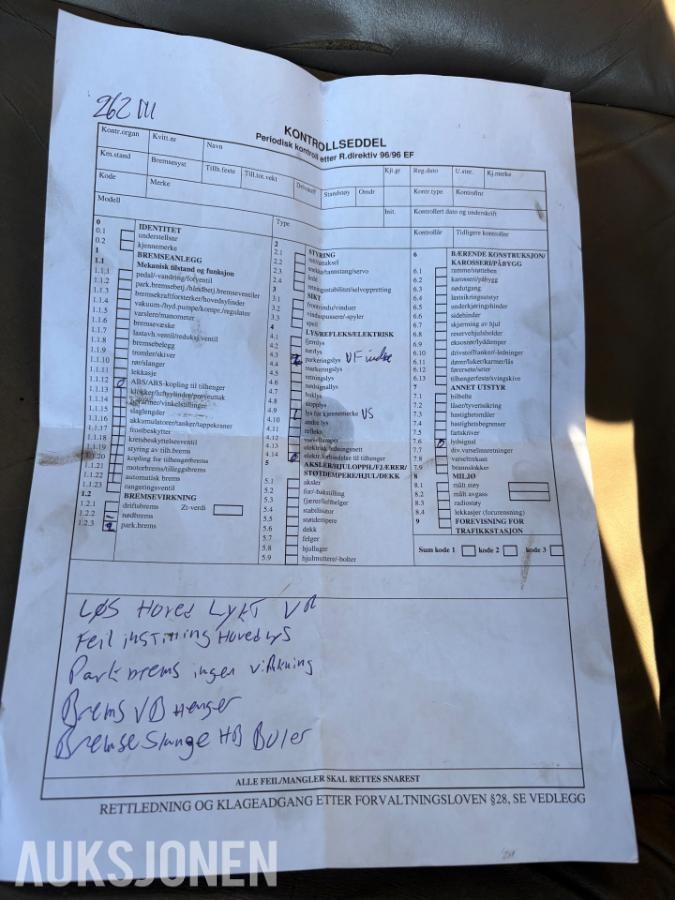 KONTROLLSEDDEL
Periodisk kontroll etter R.direktiv 96/96 EF
Kontr.organ Kvitt.nr Navn Kjt.gr Reg.dato U.snr. Kj.merke
Km.stand Bremsesyst Tillh.feste Till.tot.vekt Drivstoff Standstøy Omdr Kontr.type Kontrollnr
Kode Merke Init. Kontrollert dato og underskrift
Modell Type Kontrollår Tidligere kontroller
0 IDENTITET
0.1 understellsnr
0.2 kjennemerke
1 BREMSEANLEGG
1.1 Mekanisk tilstand og funksjon
1.1.1 pedal/-vandring/forventil
park.bremsebetj./håndbetj.bremseventiler
bremsekraftforsterker/hovedsylinder
vakuum-/hyd.pumpe/kompr./regulator
varslere/manometer
bremsevæske
lastavh.ventil/reduksj.ventil
1.1.8 bremsebelegg
1.1.9 tromler/skiver
rør/slanger
lekkasje
1.1.12 ABS/ABS-kopling til tilhenger
1.1.13
slaglengder
akkumulatorer/tanker/tappekraner
frostbeskytter
kretsbeskyttelsesventil
styring av tilh.brems
kopling for tilhengerbrems
motorbrems/tilleggsbrems
automatisk brems
rangeringsventil
1.2 BREMSEVIRKNING
1.2.1 driftsbrems Z-verdi
1.2.2 nødbrems
1.2.3 park.brems
2 STYRING
2.1
2.2
2.3
2.4
3 SIKT
3.1
3.2
3.3 speil
4 LYS/REFLEKS/ELEKTRISK
4.1 fjernlys
4.2 nærlys
4.3 parkeringslys
4.4 markeringslys
retningslys
nødsignallys
baklys
stopplys
4.9 lys for kjennemerke VS
andre lys
refleks
elektrisk ledningsnett
4.14 elektr.forbindelse til tilhenger
5 AKSLER/HJULOPPH./FJÆRER/
STØTDEMPERE/HJUL/DEKK
5.1 aksler
5.2 for-/bakstilling
5.3 fjærer/luftbelger
5.4 stabilisator
5.5 støtdempere
5.6 dekk
5.7 felger
5.8 hjullager
5.9 hjulmuttere/-bolter
6 BÆRENDE KONSTRUKSJON/
KAROSSERI/PÅBYGG
6.1 ramme/støtteben
6.2 karosseri/påbygg
6.3 nødutgang
6.4 lastsikringsutstyr
6.5 underkjøringshinder
6.6 sidehinder
6.7 skjerming av hjul
6.8 reservehjulsholder
6.9 eksosrør/lyddemper
6.10 drivstoffanker/-ledninger
6.11 dører/luker/karmer/lås
6.12 førersete/seter
6.13 tilhengerfeste/svingskive
7 ANNET UTSTYR
7.1 bilbelte
7.2 låser/tyverisikring
7.3 hastighetsmåler
7.4 hastighetsbegrenser
7.5 fartskriver
7.6 lydsignal
7.7 div.varselinnretninger
7.8 varseltrekant
7.9 brannslokker
8 MILJØ
8.1 målt støy
8.2 målt avgass
8.3 radiostøy
8.4 lekkasjer (forurensning)
9 FOREVISNING FOR
TRAFIKKSTASJON
Sum kode 1 kode 2 kode 3
LØS Hoved Lykt VR
Feil instilling Hovedlys
Park brems ingen virkning
Brems VB Henger
Bremseslange HB Buler
ALLE FEIL/MANGLER SKAL RETTES SNAREST
RETTLEDNING OG KLAGEADGANG ETTER FORVALTNINGSLOVEN §28, SE VEDLEGG
AUKSJONEN